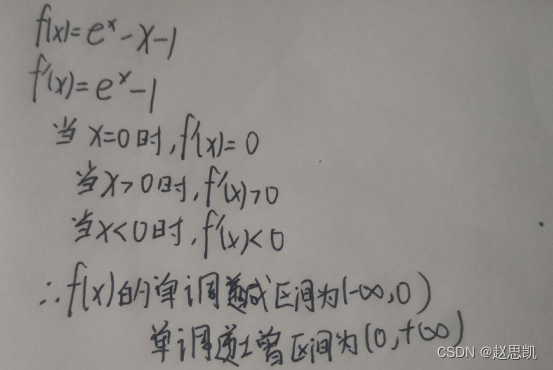 f(x)=e^x-x-1
f'(x)=e^x-1
当x=0时,f'(x)=0
当x>0时,f'(x)>0
当x<0时,f'(x)<0
∴f(x)的单调递减区间为(-∞,0)
单调递增区间为(0,+∞)
CSDN @赵思凯